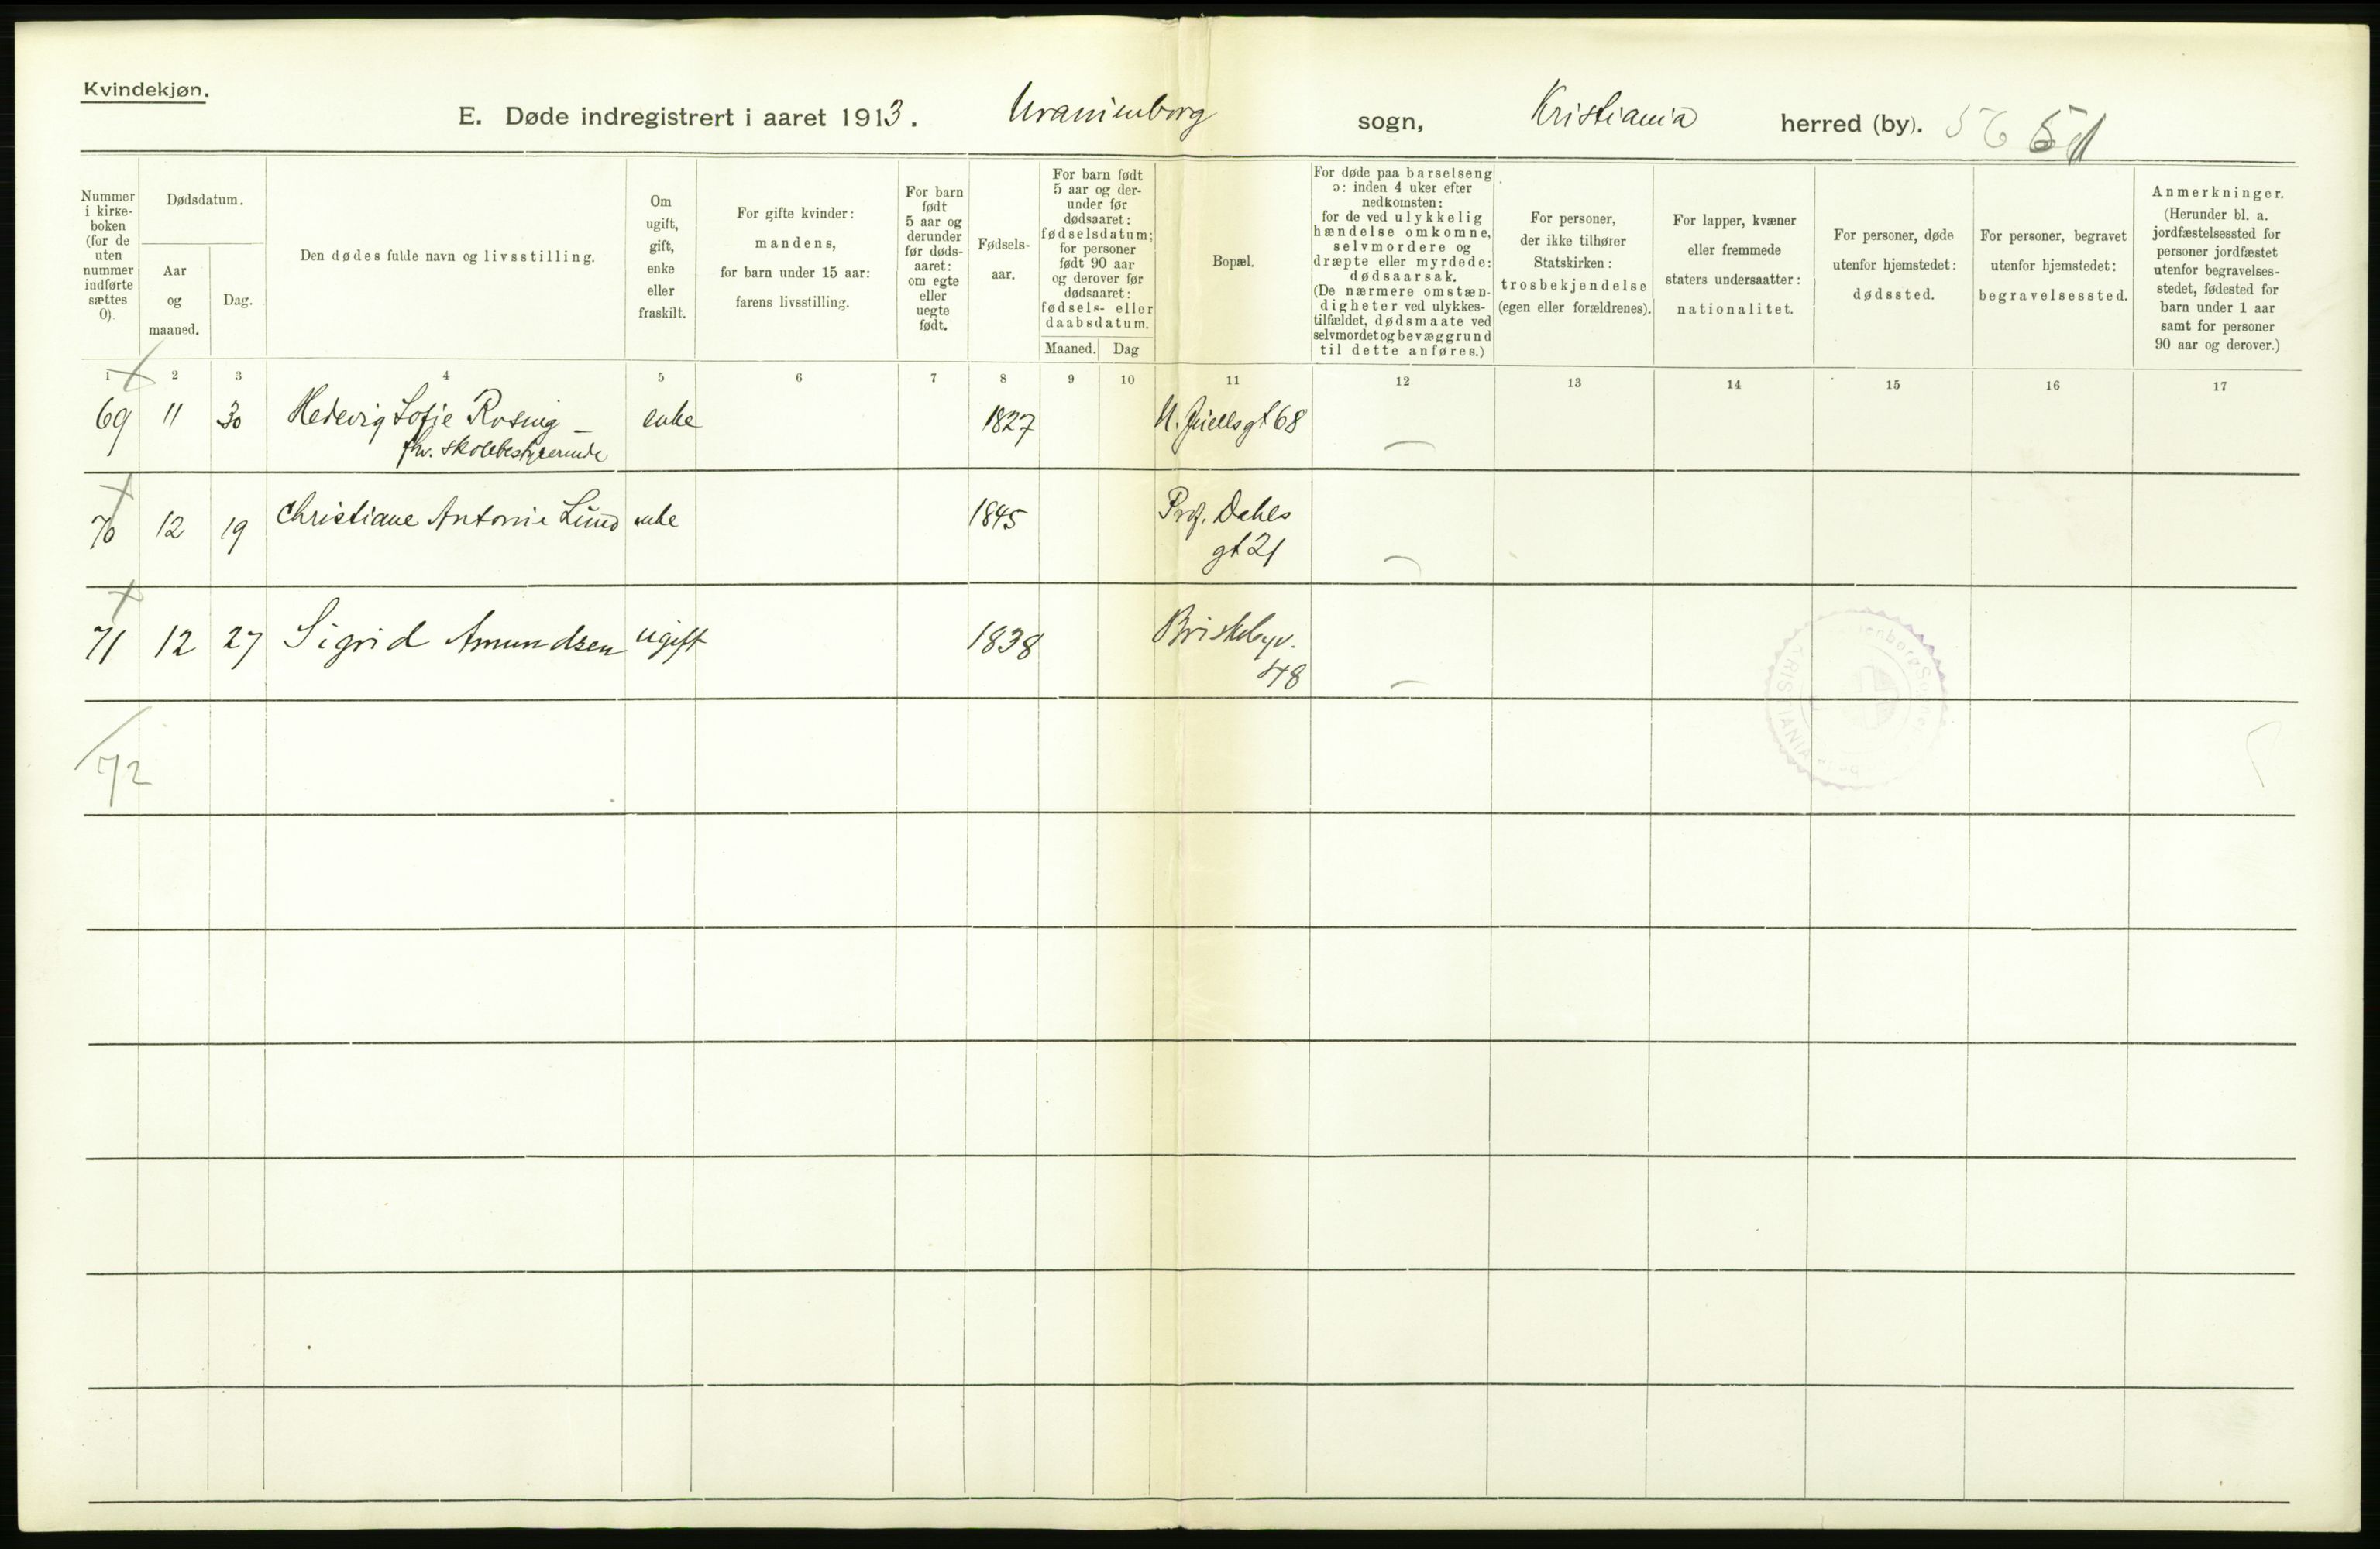 Kvindekjøn.
E. Døde indregistrert i aaret 1913. Uranienborg sogn, Kristiania herred (by).
Nummer i kirke- boken (for de uten nummer indførte sættes 0).
Dødsdatum.
Aar og maaned.
Dag.
Den dødes fulde navn og livsstilling.
Om ugift, gift, enke eller fraskilt.
For gifte kvinder: mandens, for barn under 15 aar: farens livsstilling.
For barn født 5 aar og derunder før døds- aaret: om egte eller uegte født.
Fødsels- aar.
For barn født 5 aar og der- under før dødsaaret: fødselsdatum; for personer født 90 aar og derover før dødsaaret: fødsels- eller daabsdatum.
Maaned. Dag
Bopæl.
For døde paa barselseng ɔ: inden 4 uker efter nedkomsten: for de ved ulykkelig hændelse omkomne, selvmordere og dræpte eller myrdede: dødsaarsak. (De nærmere omstæn- digheter ved ulykkes- tilfældet, dødsmaate ved selvmordet og bevæggrund til dette anføres.)
For personer, der ikke tilhører Statskirken: trosbekjendelse (egen eller forældrenes).
For lapper, kvæner eller fremmede staters undersaatter: nationalitet.
For personer, døde utenfor hjemstedet: dødssted.
For personer, begravet utenfor hjemstedet: begravelsessted.
Anmerkninger. (Herunder bl. a. jordfæstelsessted for personer jordfæstet utenfor begravelses- stedet, fødested for barn under 1 aar samt for personer 90 aar og derover.)
1 2 3 4 5 6 7 8 9 10 11 12 13 14 15 16 17
69 11 30 Hedevig Sofie Rosing – enke 1827 N. Juellsgt 68 —
fhv. skolebestyrerinde
70 12 19 Christiane Antonie Lund enke 1845 Prof. Dahls
gt 21 —
71 12 27 Sigrid Amundsen ugift 1838 Briskebyv.
48 —
72
KRISTIANIA